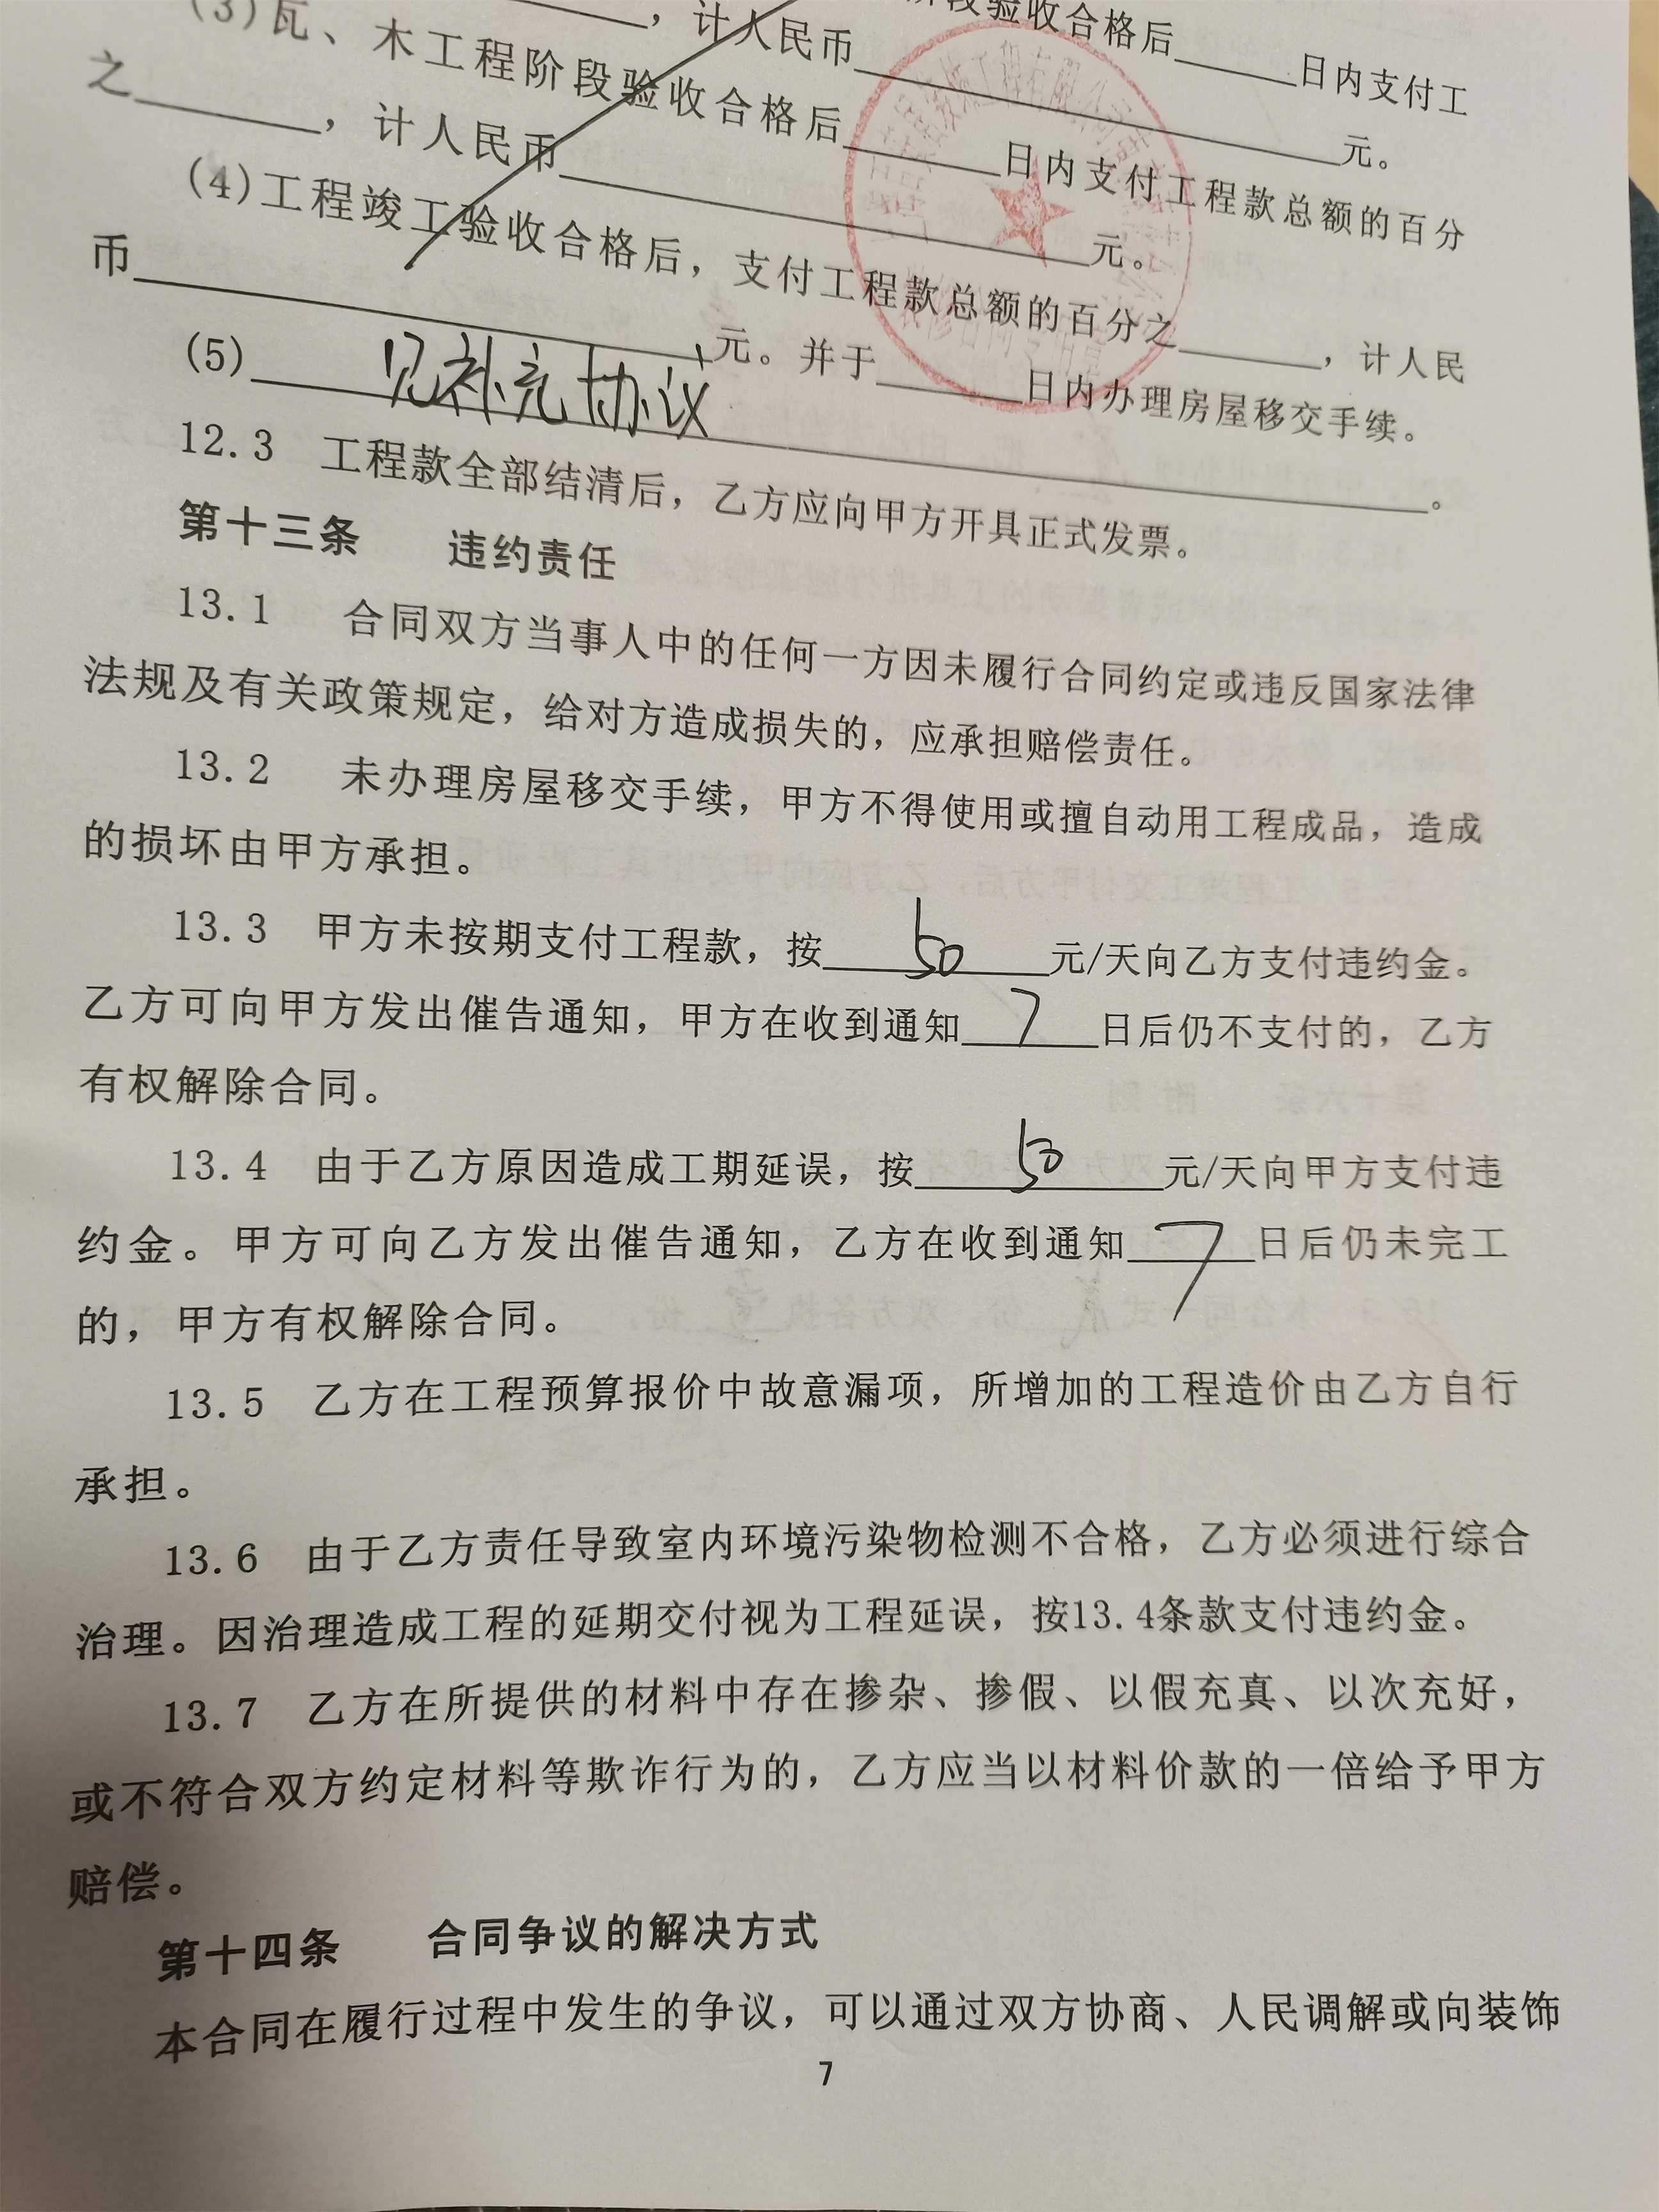 ，计人民币 段验收合格后 日内支付工
元。
(3)瓦、木工程阶段验收合格后 日内支付工程款总额的百分
之 ，计人民币 元。
(4)工程竣工验收合格后，支付工程款总额的百分之 ，计人民
币 元。并于 日内办理房屋移交手续。
(5) 见补充协议 。
12.3 工程款全部结清后，乙方应向甲方开具正式发票。
第十三条 违约责任
13.1 合同双方当事人中的任何一方因未履行合同约定或违反国家法律
法规及有关政策规定，给对方造成损失的，应承担赔偿责任。
13.2 未办理房屋移交手续，甲方不得使用或擅自动用工程成品，造成
的损坏由甲方承担。
13.3 甲方未按期支付工程款，按 50 元/天向乙方支付违约金。
乙方可向甲方发出催告通知，甲方在收到通知 7 日后仍不支付的，乙方
有权解除合同。
13.4 由于乙方原因造成工期延误，按 50 元/天向甲方支付违
约金。甲方可向乙方发出催告通知，乙方在收到通知 7 日后仍未完工
的，甲方有权解除合同。
13.5 乙方在工程预算报价中故意漏项，所增加的工程造价由乙方自行
承担。
13.6 由于乙方责任导致室内环境污染物检测不合格，乙方必须进行综合
治理。因治理造成工程的延期交付视为工程延误，按13.4条款支付违约金。
13.7 乙方在所提供的材料中存在掺杂、掺假、以假充真、以次充好，
或不符合双方约定材料等欺诈行为的，乙方应当以材料价款的一倍给予甲方
赔偿。
第十四条 合同争议的解决方式
本合同在履行过程中发生的争议，可以通过双方协商、人民调解或向装饰
7